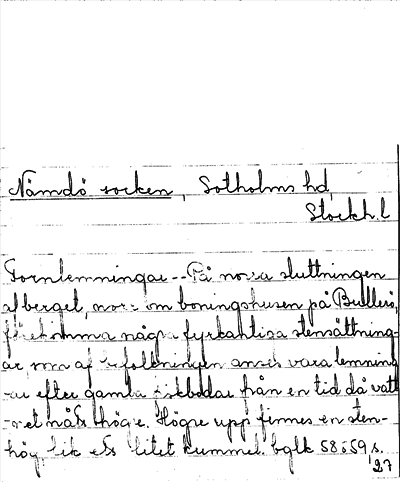 Nämdö socken, Sotholms hd,
Stockh. l
Fornlemningar -- På norra sluttningen
af berget, norr om boningshusen på Bullerö,
förekomma några fyrkantiga stensättning-
ar som af befolkningen anses vara lemning-
ar efter gamla fiskbodar från en tid då vatt-
net nått högre. Högre upp finnes en sten-
hög, lik ett litet kummel. bglk 58 s.
27